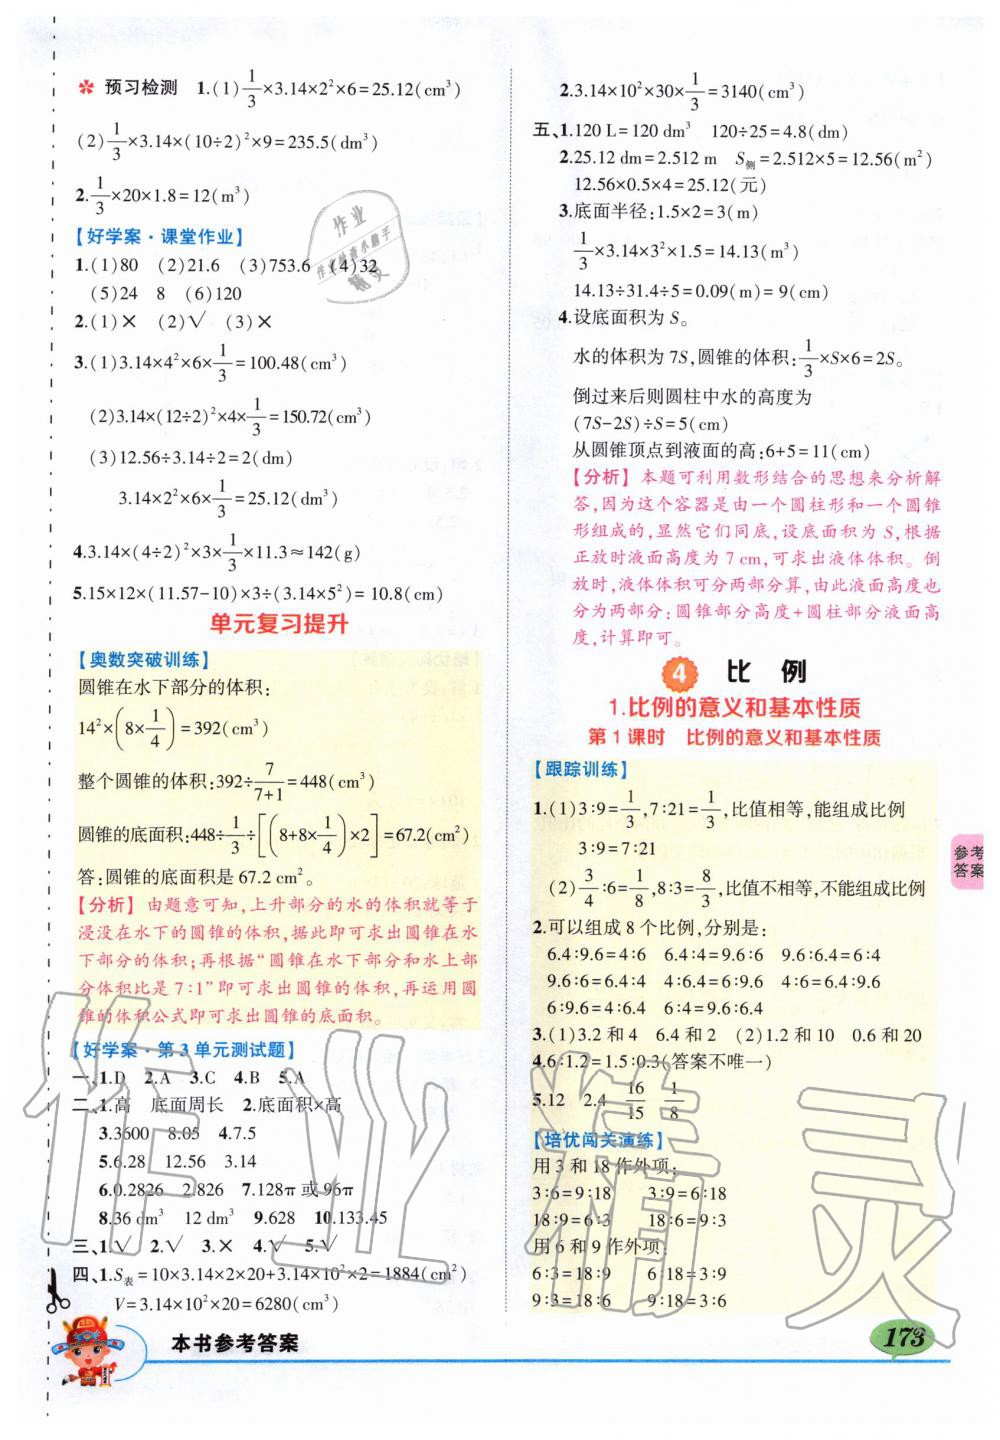 预习检测 1.(1)1/3×3.14×2²×6=25.12(cm³)
(2)1/3×3.14×(10÷2)²×9=235.5(dm³)
2.1/3×20×1.8=12(m³)
【好学案·课堂作业】
1.(1)80 (2)21.6 (3)753.6 (4)32
(5)24 8 (6)120
2.(1)× (2)√ (3)×
3.(1)3.14×4²×6×1/3=100.48(cm³)
(2)3.14×(12÷2)²×4×1/3=150.72(cm³)
(3)12.56÷3.14÷2=2(dm)
3.14×2²×6×1/3=25.12(dm³)
4.3.14×(4÷2)²×3×1/3×11.3≈142(g)
5.15×12×(11.57-10)×3÷(3.14×5²)=10.8(cm)
单元复习提升
【奥数突破训练】
圆锥在水下部分的体积:
14²×(8×1/4)=392(cm³)
整个圆锥的体积:392÷7/(7+1)=448(cm³)
圆锥的底面积:448÷1/3÷[(8+8×1/4)×2]=67.2(cm²)
答:圆锥的底面积是 67.2 cm²。
【分析】 由题意可知,上升部分的水的体积就等于
浸没在水下的圆锥的体积,据此即可求出圆锥在水
下部分的体积;再根据“圆锥在水下部分和水上部
分体积比是 7:1”即可求出圆锥的体积,再运用圆
锥的体积公式即可求出圆锥的底面积。
【好学案·第 3 单元测试题】
一、1.D 2.A 3.C 4.B 5.A
二、1.高 底面周长 2.底面积×高
3.3600 8.05 4.7.5
5.6.28 12.56 3.14
6.0.2826 2.826 7.128π 或 96π
8.36 dm³ 12 dm³ 9.628 10.133.45
三、1.√ 2.√ 3.× 4.√ 5.√
四、1.S表=10×3.14×2×20+3.14×10²×2=1884(cm²)
V=3.14×10²×20=6280(cm³)
2.3.14×10²×30×1/3=3140(cm³)
五、1.120 L=120 dm³ 120÷25=4.8(dm)
2.25.12 dm=2.512 m S侧=2.512×5=12.56(m²)
12.56×0.5×4=25.12(元)
3.底面半径:1.5×2=3(m)
1/3×3.14×3²×1.5=14.13(m³)
14.13÷31.4÷5=0.09(m)=9(cm)
4.设底面积为 S。
水的体积为 7S,圆锥的体积:1/3×S×6=2S。
倒过来后则圆柱中水的高度为
(7S-2S)÷S=5(cm)
从圆锥顶点到液面的高:6+5=11(cm)
【分析】 本题可利用数形结合的思想来分析解
答,因为这个容器是由一个圆柱形和一个圆锥
形组成的,显然它们同底,设底面积为 S,根据
正放时液面高度为 7 cm,可求出液体体积。倒
放时,液体体积可分两部分算,由此液面高度也
分为两部分:圆锥部分高度+圆柱部分液面高
度,计算即可。
4 比 例
1.比例的意义和基本性质
第 1 课时 比例的意义和基本性质
【跟踪训练】
1.(1)3:9=1/3,7:21=1/3,比值相等,能组成比例
3:9=7:21
(2)3/4:6=1/8,8:3=8/3,比值不相等,不能组成比例
2.可以组成 8 个比例,分别是:
6.4:9.6=4:6 6.4:4=9.6:6 9.6:6.4=6:4
9.6:6=6.4:4 4:6=6.4:9.6 4:6.4=6:9.6
6:9.6=4:6.4 6:4=9.6:6.4
3.(1)3.2 和 4 6.4 和 2 (2)1.2 和 10 0.6 和 20
4.6:1.2=1.5:0.3(答案不唯一)
5.12 2.4 16/15 1/8
【培优闯关演练】
用 3 和 18 作外项:
3:6=9:18 3:9=6:18
18:9=6:3 18:6=9:3
用 6 和 9 作外项:
6:3=18:9 6:18=3:9
9:3=18:6 9:18=3:6
参考
答案
本书参考答案
173
作业精灵